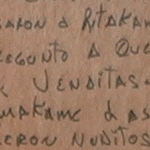 A RITAKA
EGUNTO A QUE
VENDITAS.
MAKAME d AS
CERON NUDITOS